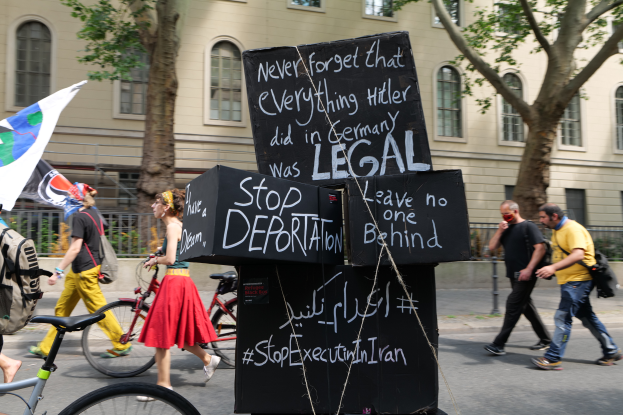 Never forget that
everything Hitler
did in Germany
was LEGAL
I have
a
Dream..
STOP
DEPORTATION
Leave no
one
Behind
#اعدام_نکنید
#StopExecutinInIran